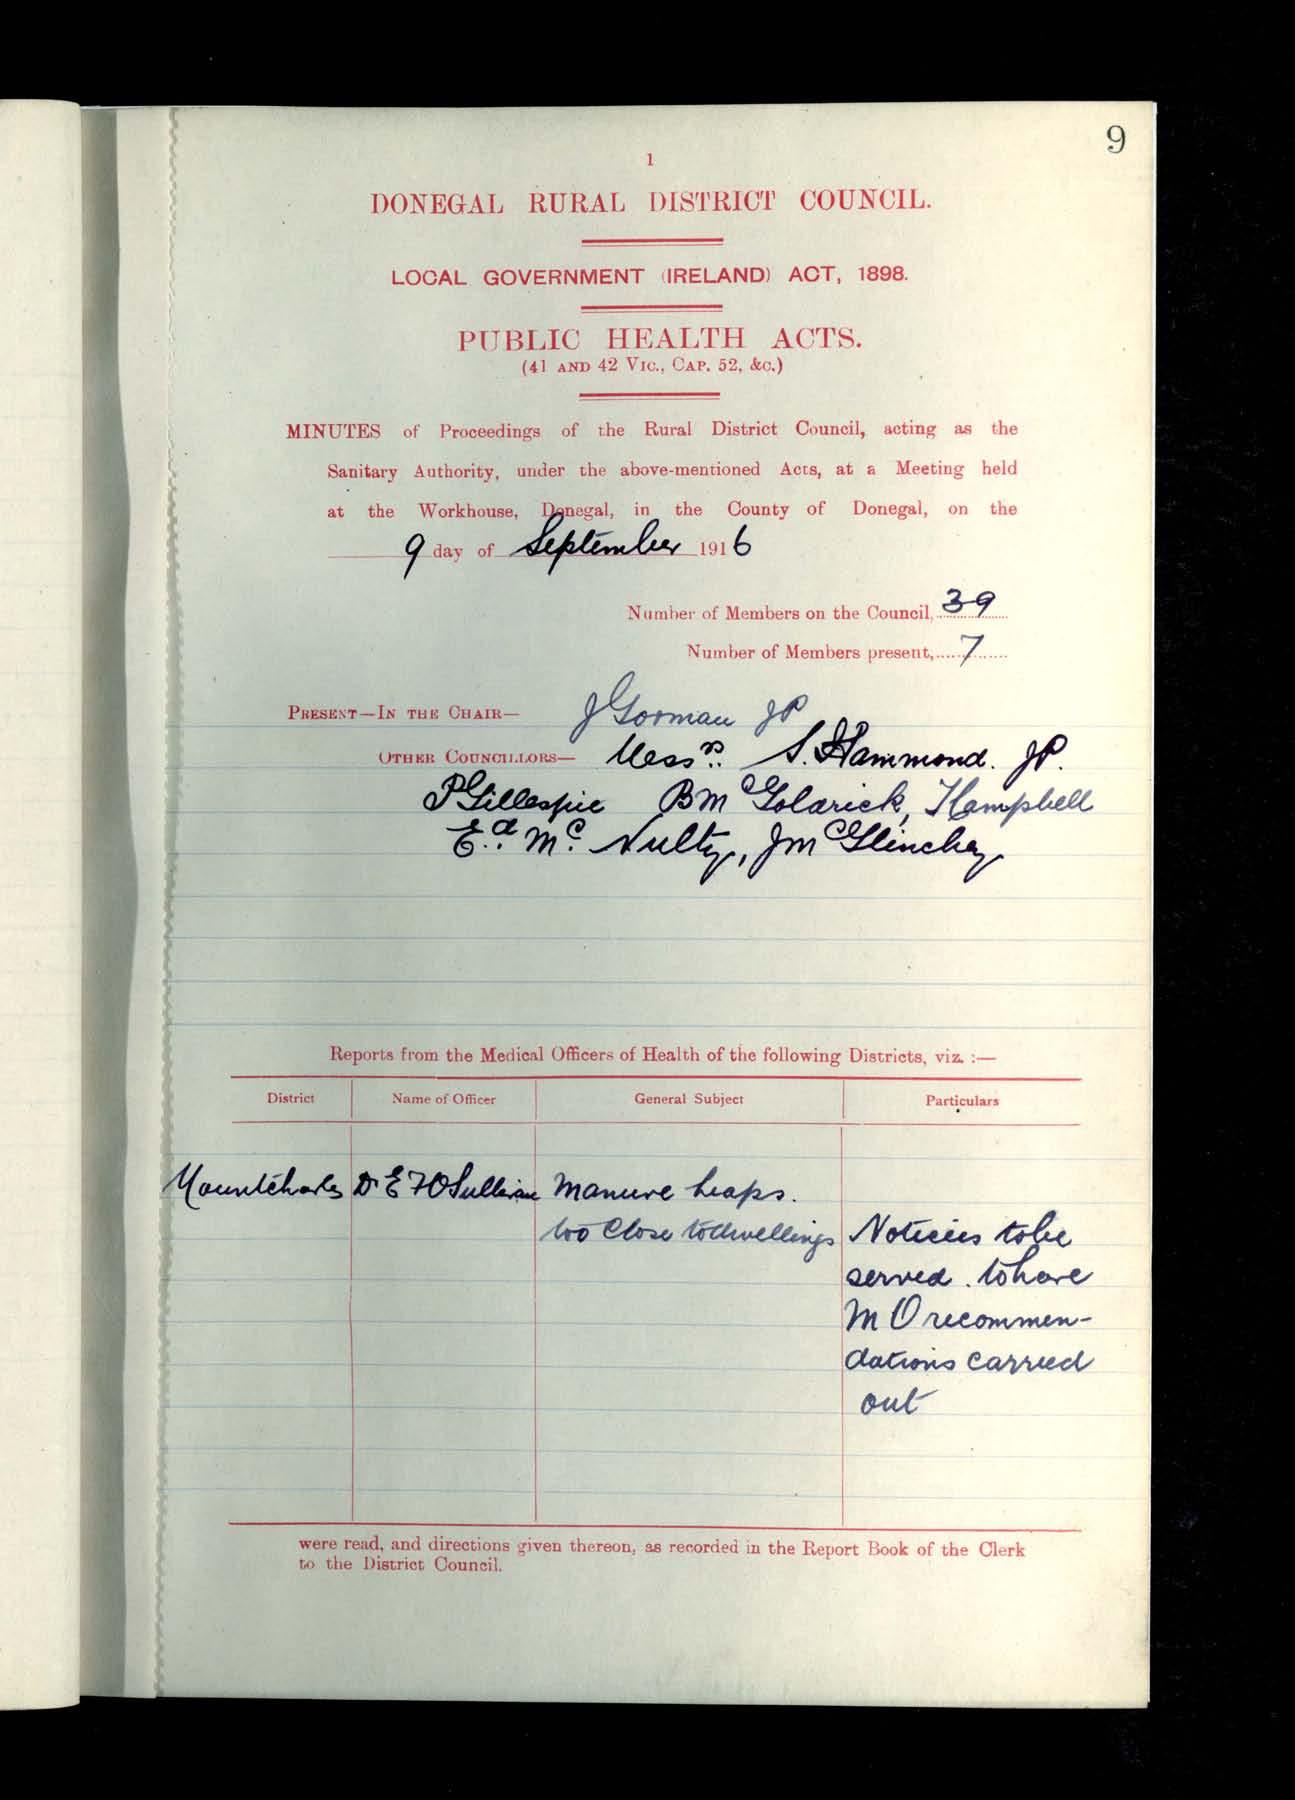 9
1
DONEGAL RURAL DISTRICT COUNCIL.
LOCAL GOVERNMENT (IRELAND) ACT, 1898.
PUBLIC HEALTH ACTS.
(41 AND 42 VIC., CAP. 52, &c.)
MINUTES of Proceedings of the Rural District Council, acting as the
Sanitary Authority, under the above-mentioned Acts, at a Meeting held
at the Workhouse, Donegal, in the County of Donegal, on the
9 day of September 1916
Number of Members on the Council, 39
Number of Members present, 7
PRESENT—IN THE CHAIR— J Gorman JP
OTHER COUNCILLORS— Messrs. S. Hammond. JP.
P Gillespie B McGoldrick, Campbell
Ed. Mc. Nulty, J McGlinchey
Reports from the Medical Officers of Health of the following Districts, viz. :—
District Name of Officer General Subject Particulars
Mountcharles Dr E F O Sullivan Manure heaps.
too Close to dwellings Notices to be
served. to have
M O recommen-
dations carried
out
were read, and directions given thereon, as recorded in the Report Book of the Clerk
to the District Council.